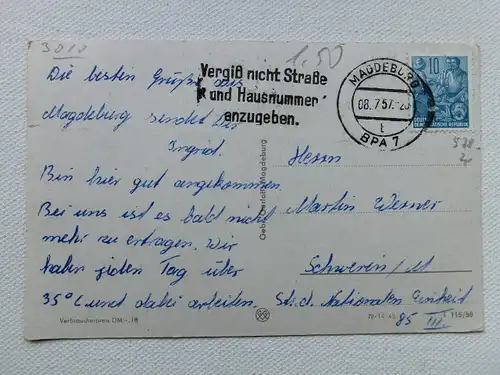 3010
1.50
Die besten Grüße aus
Magdeburg sendet dir
Ingrid.
Bin hier gut angekommen.
Bei uns ist es bald nicht
mehr zu ertragen. Wir
haben jeden Tag über
35°C und dabei arbeiten.
Vergiß nicht Straße
und Hausnummer
anzugeben.
MAGDEBURG
08.7.57.-20
t
BPA 7
10
DEUTSCHE DEMOKRATISCHE REPUBLIK
Herrn
Martin Werner
Schwerin/M
Str. d. Nationalen Einheit
85 III.
Gebr. Garloff, Magdeburg
Verbraucherpreis DM -,18
IV-14-45
115/56